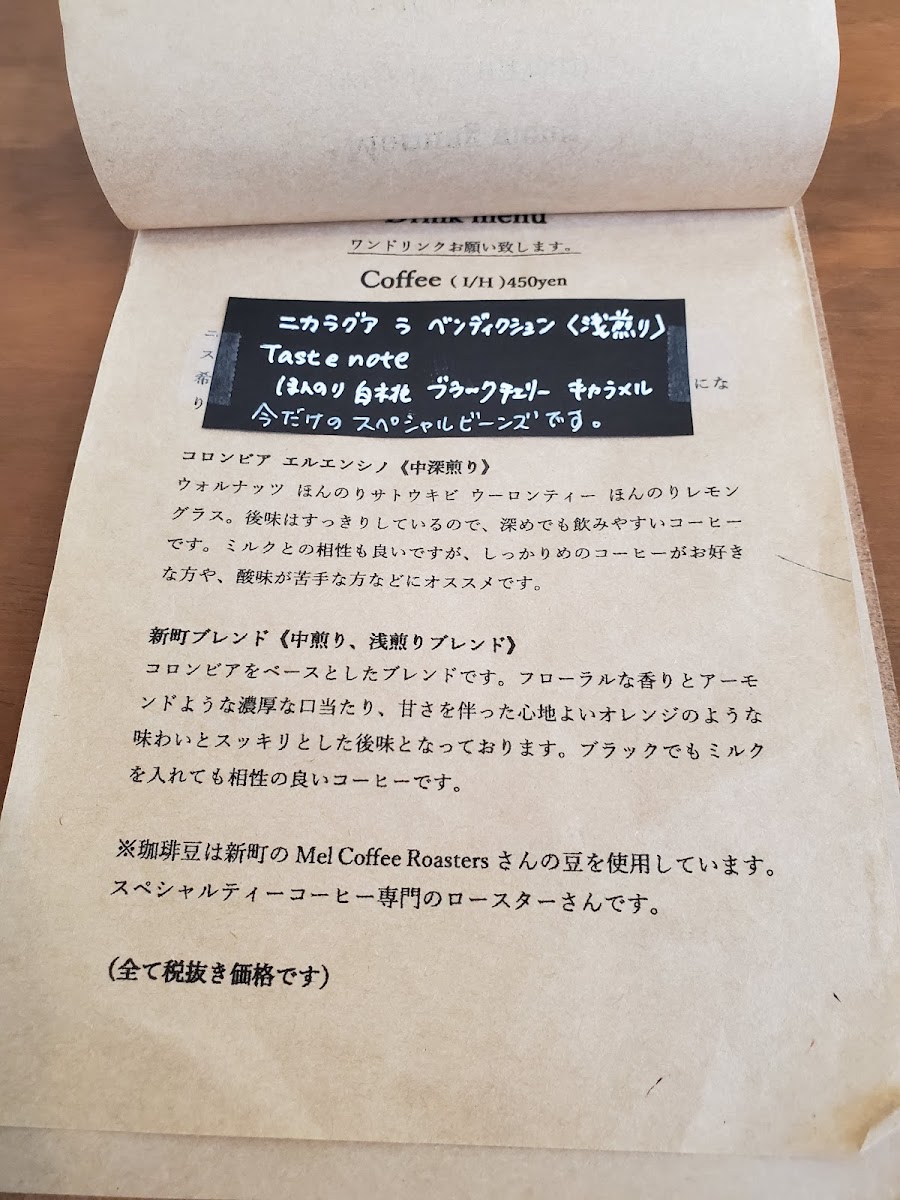 Drink menu
ワンドリンクお願い致します。
Coffee ( I/H )450yen
ニカラグア ラ ベンディクション〈浅煎り〉
Taste note
ほんのり白ネ兆 ブラックチェリー キャラメル
今だけのスペシャルビーンズです。
ニ
ス
希
にな
り
コロンビア エルエンシノ《中深煎り》
ウォルナッツ ほんのりサトウキビ ウーロンティー ほんのりレモン
グラス。後味はすっきりしているので、深めでも飲みやすいコーヒー
です。ミルクとの相性も良いですが、しっかりめのコーヒーがお好き
な方や、酸味が苦手な方などにオススメです。
新町ブレンド《中煎り、浅煎りブレンド》
コロンビアをベースとしたブレンドです。フローラルな香りとアーモ
ンドような濃厚な口当たり、甘さを伴った心地よいオレンジのような
味わいとスッキリとした後味となっております。ブラックでもミルク
を入れても相性の良いコーヒーです。
※珈琲豆は新町の Mel Coffee Roasters さんの豆を使用しています。
スペシャルティーコーヒー専門のロースターさんです。
(全て税抜き価格です)